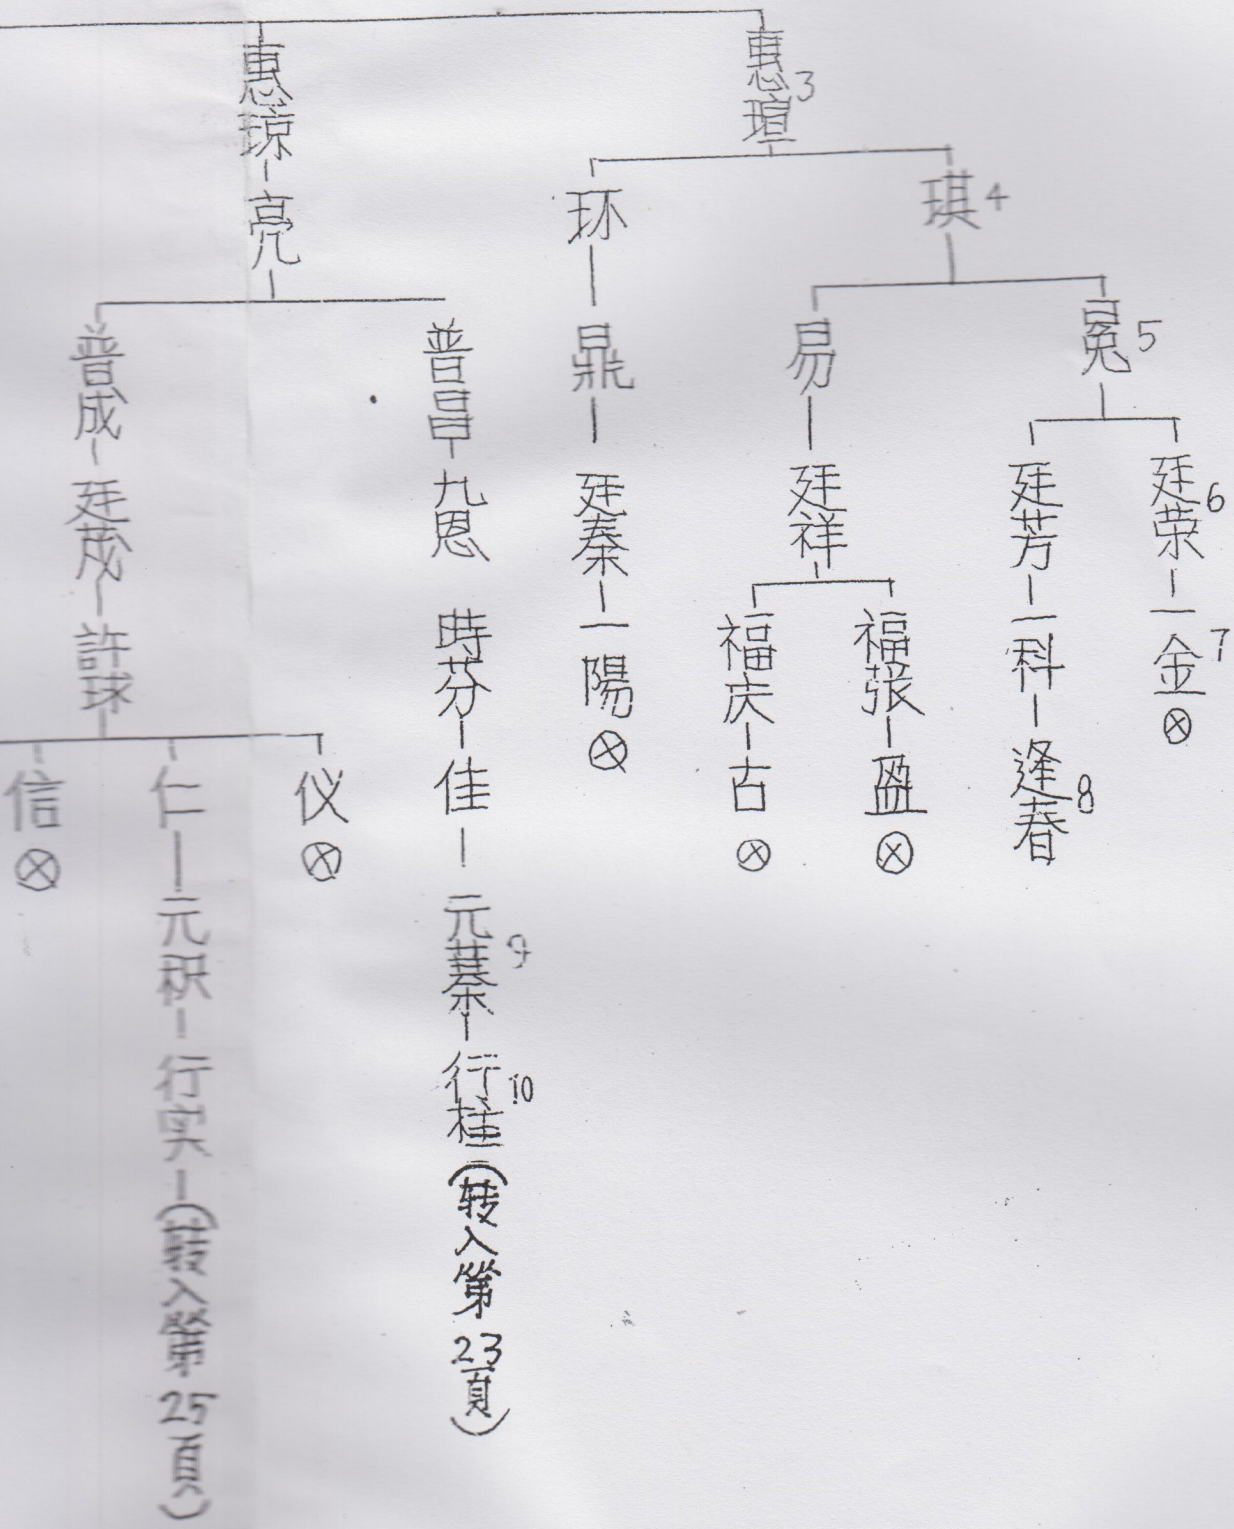 惠瑄 3
琪 4
冕 5
廷荣 6
一金 7 ⊗
廷芳
一科
逢春 8
易
廷祥
福张
盈 ⊗
福庆
古 ⊗
环
鼎
廷秦
一陽 ⊗
惠琼
亮
普昌
九恩
時芬
佳
元蓁 9
行桂 10
(转入第23頁)
普成
廷茂
許球
仪 ⊗
仁
元积
行实
(转入第25頁)
信 ⊗